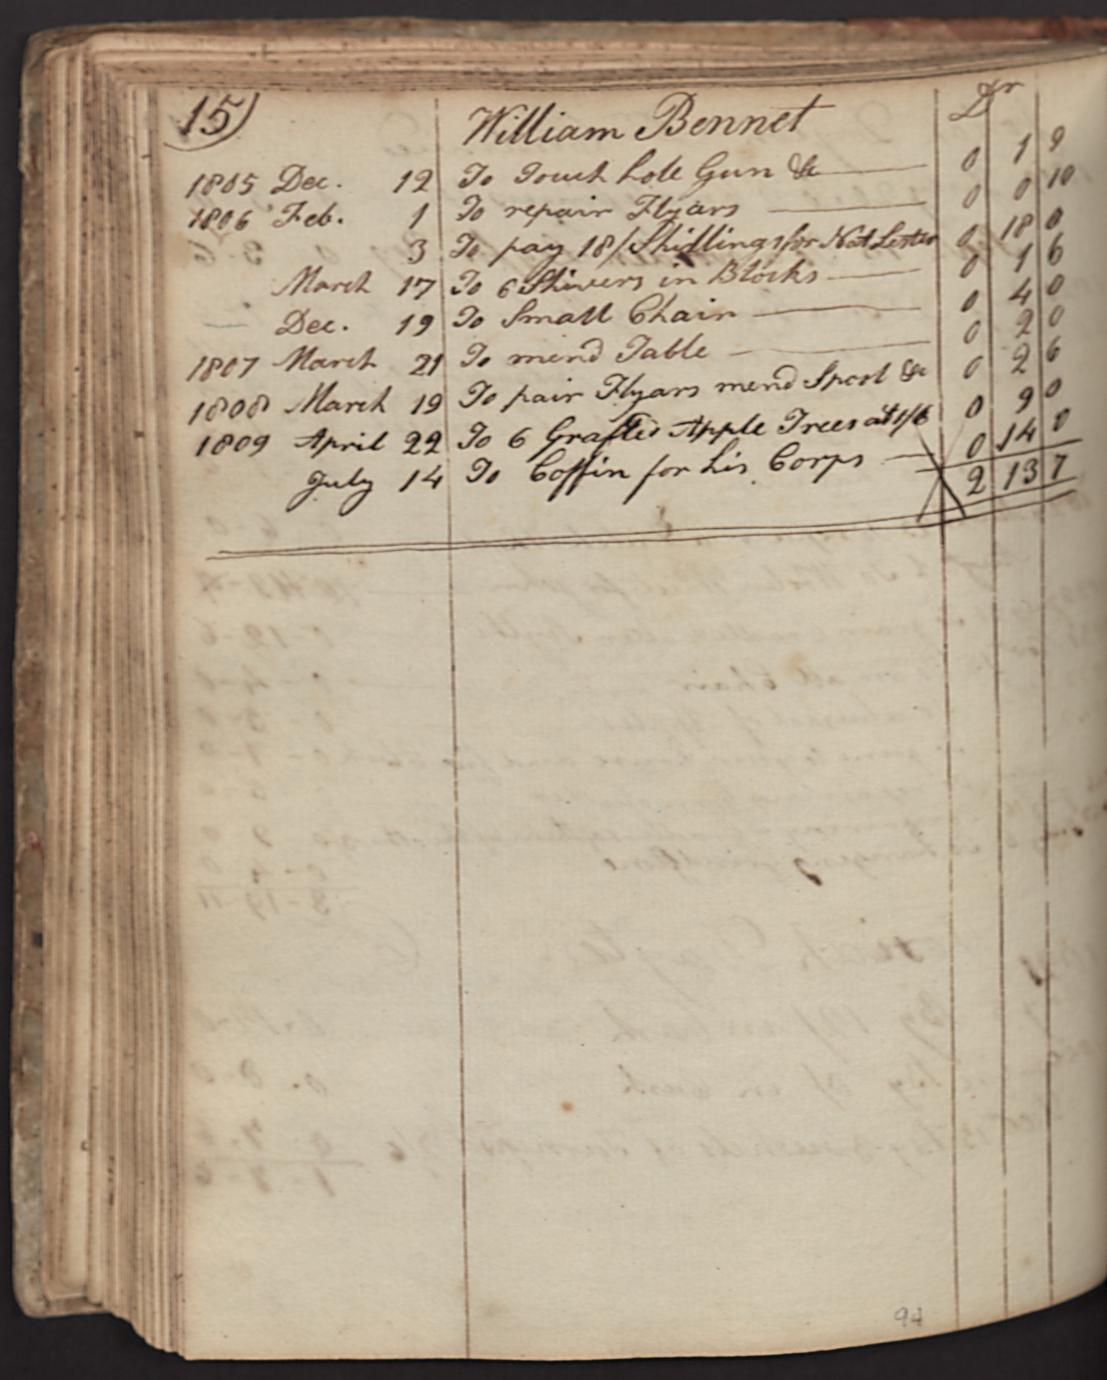 15) William Bennet Dr
1805 Dec. 12 To Touch hole Gun &c 0 1 9
1806 Feb. 1 To repair Flyars 0 0 10
3 To pay 18/ Shillings for Nat Lester 0 18 0
March 17 To 6 Shivers in Blocks 0 1 6
Dec. 19 To Small Chair 0 4 0
1807 March 21 To mend Table 0 2 0
1808 March 19 To pair Flyars mend Spool &c 0 2 6
1809 April 22 To 6 Grafted Apple Trees at 1/6 0 9 0
July 14 To Coffin for his Corps 0 14 0
2 13 7
94